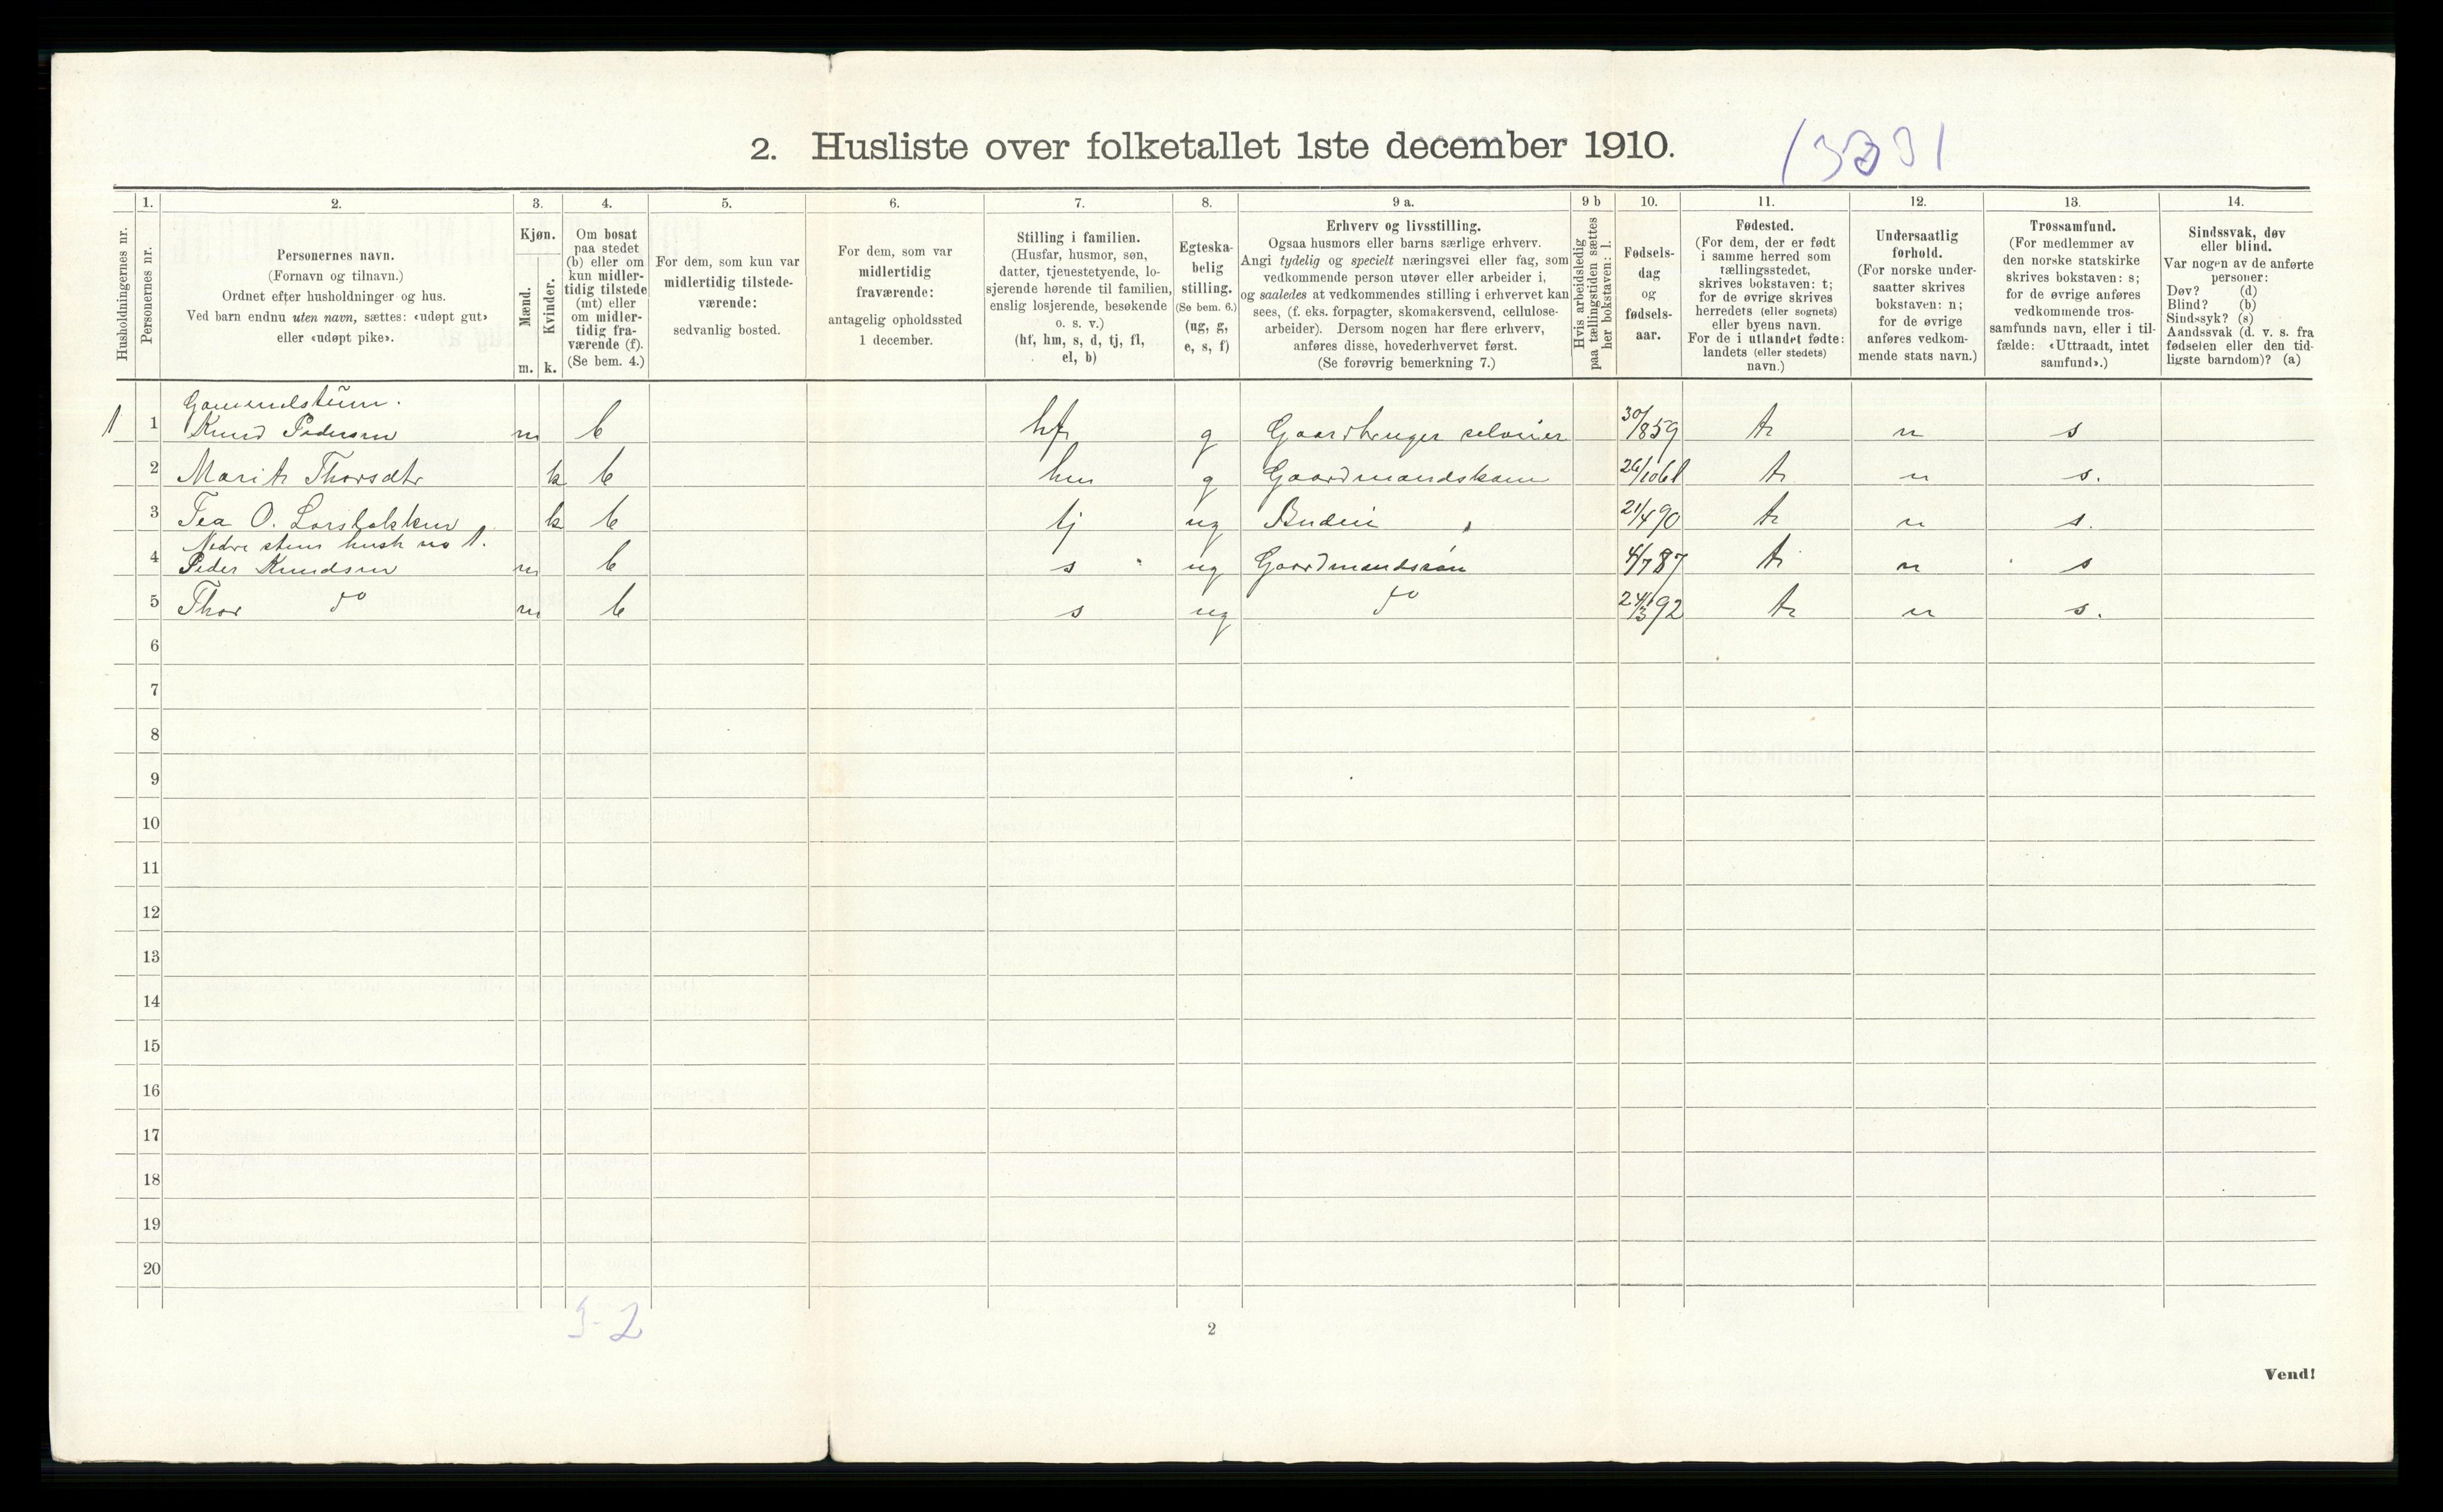 2. Husliste over folketallet 1ste december 1910.
Husholdningernes nr.
1.
Personernes nr.
2.
Personernes navn.
(Fornavn og tilnavn.)
Ordnet efter husholdninger og hus.
Ved barn endnu uten navn, sættes: «udøpt gut»
eller «udøpt pike».
3.
Kjøn.
Mænd.
Kvinder.
m. k.
4.
Om bosat
paa stedet
(b) eller om
kun midler-
tidig tilstede
(mt) eller
om midler-
tidig fra-
værende (f).
(Se bem. 4.)
5.
For dem, som kun var
midlertidig tilstede-
værende:
sedvanlig bosted.
6.
For dem, som var
midlertidig
fraværende:
antagelig opholdssted
1 december.
7.
Stilling i familien.
(Husfar, husmor, søn,
datter, tjenestetyende, lo-
sjerende hørende til familien,
enslig losjerende, besøkende
o. s. v.)
(hf, hm, s, d, tj, fl,
el, b)
8.
Egteska-
belig
stilling.
(Se bem. 6.)
(ug, g,
e, s, f)
9 a.
Erhverv og livsstilling.
Ogsaa husmors eller barns særlige erhverv.
Angi tydelig og specielt næringsvei eller fag, som
vedkommende person utøver eller arbeider i,
og saaledes at vedkommendes stilling i erhvervet kan
sees, (f. eks. forpagter, skomakersvend, cellulose-
arbeider). Dersom nogen har flere erhverv,
anføres disse, hovederhvervet først.
(Se forøvrig bemerkning 7.)
9 b
Hvis arbeidsledig
paa tællingstiden sættes
her bokstaven: l.
10.
Fødsels-
dag
og
fødsels-
aar.
11.
Fødested.
(For dem, der er født
i samme herred som
tællingsstedet,
skrives bokstaven: t;
for de øvrige skrives
herredets (eller sognets)
eller byens navn.
For de i utlandet fødte:
landets (eller stedets)
navn.)
12.
Undersaatlig
forhold.
(For norske under-
saatter skrives
bokstaven: n;
for de øvrige
anføres vedkom-
mende stats navn.)
13.
Trossamfund.
(For medlemmer av
den norske statskirke
skrives bokstaven: s;
for de øvrige anføres
vedkommende tros-
samfunds navn, eller i til-
fælde: «Uttraadt, intet
samfund».)
14.
Sindssvak, døv
eller blind.
Var nogen av de anførte
personer:
Døv? (d)
Blind? (b)
Sindssyk? (s)
Aandssvak (d. v. s. fra
fødselen eller den tid-
ligste barndom)? (a)
1 1 Knud Pedersen m b hf g Gaardbruger selveier 30/8 59 t n s
2 Marit Thorsdtr k b hm g Gaardmandskone 26/10 61 t n s.
3 Tea O. k b tj ug Budeie 21/4 90 t n s.
Nedre stuen hush no 1.
4 Peder Knudsen m b s ug Gaardmandssøn 4/7 87 t n s
5 Thor do m b s ug do 24/3 92 t n s.
6
7
8
9
10
11
12
13
14
15
16
17
18
19
20
3-2
2
Vend!